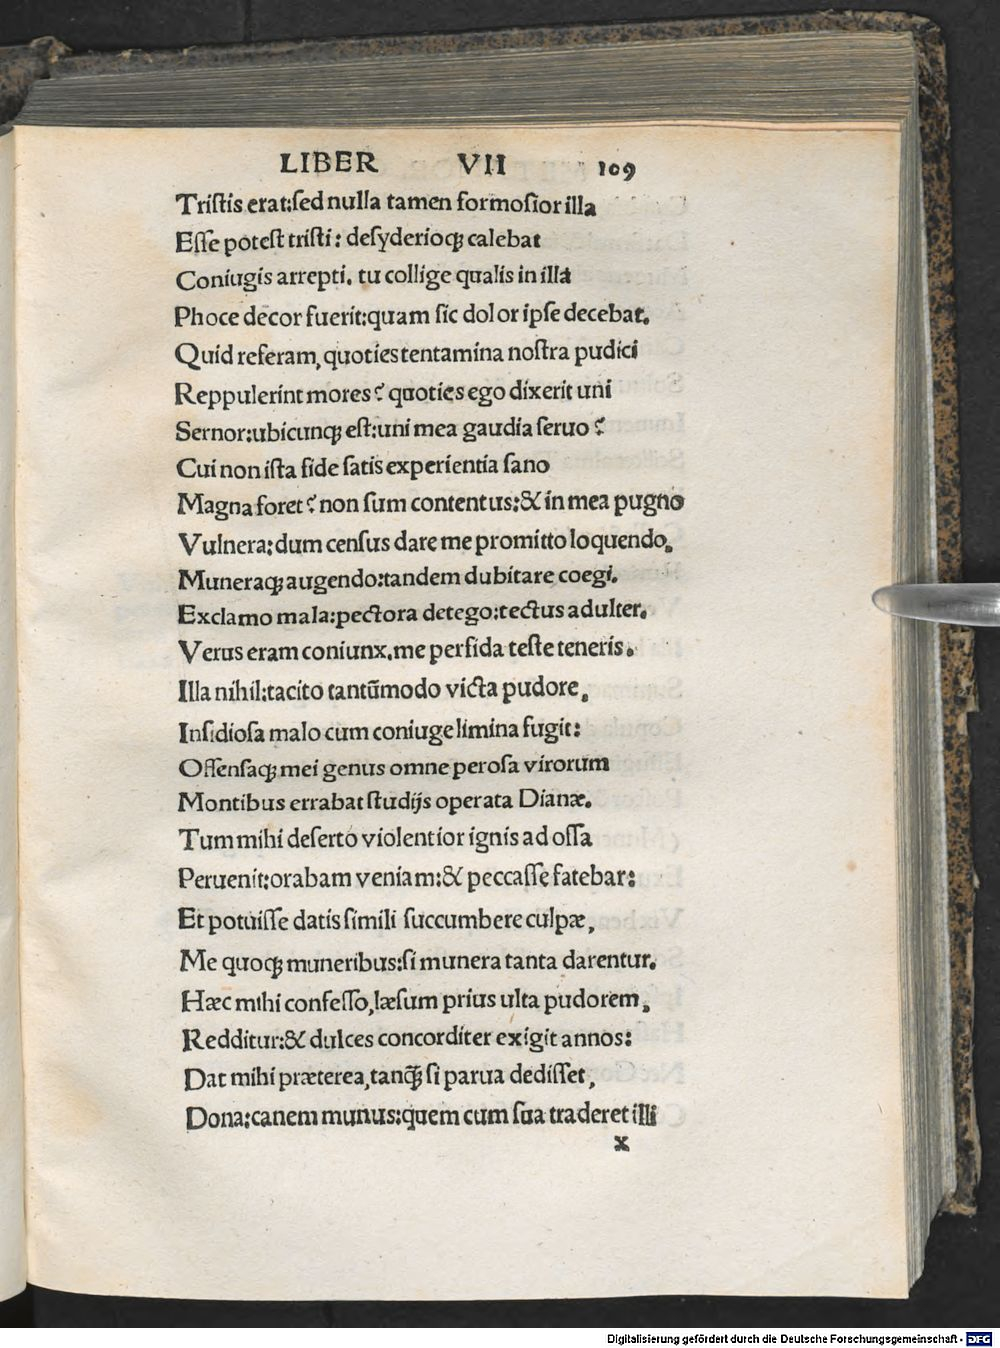 LIBER VII 109
Triſtis erat:ſed nulla tamen formoſior illa
Eſſe poteſt triſti: deſyderioq; calebat
Coniugis arrepti. tu collige qualis in illa
Phoce decor fuerit:quam ſic dolor ipſe decebat.
Quid referam, quoties tentamina noſtra pudici
Reppulerint mores? quoties ego dixerit uni
Sernor:ubicunq; eſt:uni mea gaudia ſeruo?
Cui non iſta fide ſatis experientia ſano
Magna foret? non ſum contentus:& in mea pugno
Vulnera:dum cenſus dare me promitto loquendo,
Muneraq; augendo:tandem dubitare coegi.
Exclamo mala:pectora detego:tectus adulter.
Verus eram coniunx.me perfida teſte teneris.
Illa nihil:tacito tantūmodo victa pudore,
Inſidioſa malo cum coniuge limina fugit:
Offenſaq; mei genus omne peroſa virorum
Montibus errabat ſtudijs operata Dianæ.
Tum mihi deſerto violentior ignis ad oſſa
Peruenit:orabam veniam:& peccaſſe fatebar:
Et potuiſſe datis ſimili ſuccumbere culpæ,
Me quoq; muneribus:ſi munera tanta darentur.
Hæc mihi confeſſo,læſum prius ulta pudorem,
Redditur:& dulces concorditer exigit annos:
Dat mihi præterea,tanq̃ ſi parua dediſſet,
Dona:canem munus:quem cum ſua traderet illi
x
Digitalisierung gefördert durch die Deutsche Forschungsgemeinschaft - DFG